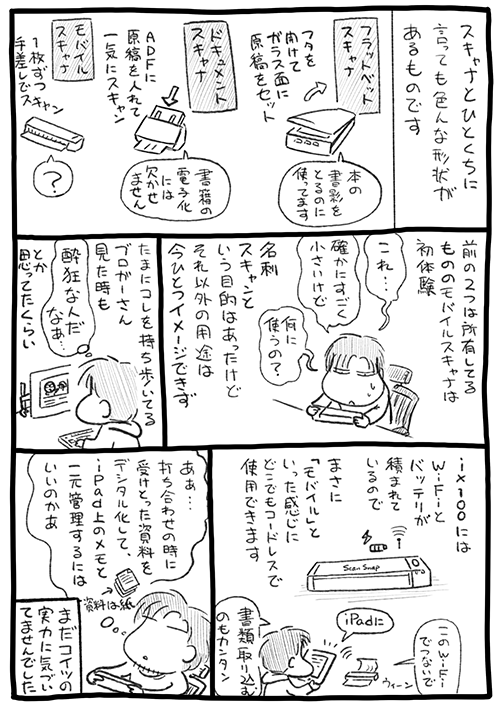 スキャナとひとくちに
言っても色んな形状が
あるものです
フラットベット
スキャナ
フタを
開けて
ガラス面に
原稿をセット
本の
書影を
とるのに
使ってます
ドキュメント
スキャナ
ADFに
原稿を入れて
一気にスキャン
書籍の
電子化
には
欠かせ
ません
モバイル
スキャナ
1枚ずつ
手差しでスキャン
?
前の2つは所有してる
もののモバイルスキャナは
初体験
これ…
確かにすごく
小さいけど
何に
使うの?
名刺
スキャンと
いう目的はあったけど
それ以外の用途は
今ひとつイメージできず
たまにコレを持ち歩いてる
ブロガーさん
見た時も
酔狂な人だ
なぁ…
とか
思ってたくらい
ix100には
Wi-Fiと
バッテリが
積まれて
いるので
まさに
「モバイル」と
いった感じに
どこでもコードレスで
使用できます
Scan Snap
このWi-Fi
でつないで
ウィーン
iPadに
書類取り込む
のもカンタン
ああ…
打ち合わせの時に
受けとった資料を
デジタル化して、
iPad上のメモと
一元管理するには
いいのかあ
資料は紙
まだコイツの
実力に気づい
てませんでした